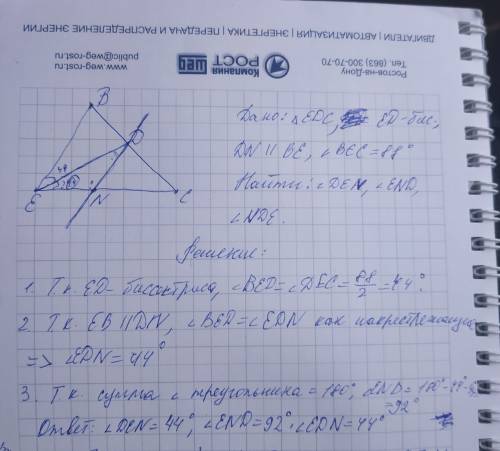 ДВИГАТЕЛИ | АВТОМАТИЗАЦИЯ | ЭНЕРГЕТИКА | ПЕРЕДАЧА И РАСПРЕДЕЛЕНИЕ ЭНЕРГИИ
Ростов-на-Дону
Тел. (863) 300-70-70
Компания
РОСТ
weg
www.weg-rost.ru
public@weg-rost.ru
B
D
E
N
C
Дано: △EDC, ED-бис.,
DN || BE, ∠BEC=88°
Найти: ∠DEN, ∠END,
∠NDE.
Решение:
1. Т.к. ED биссектриса, ∠BED=∠DEC=88/2=44°.
2. Т.к. EB || DN, ∠BED=∠EDN как накрестлежащие
=> ∠EDN=44°
3. Т.к. сумма ∠ треугольника = 180°, END=180°-44°-
92°
Ответ: ∠DEN=44°, ∠END=92°, ∠EDN=44°